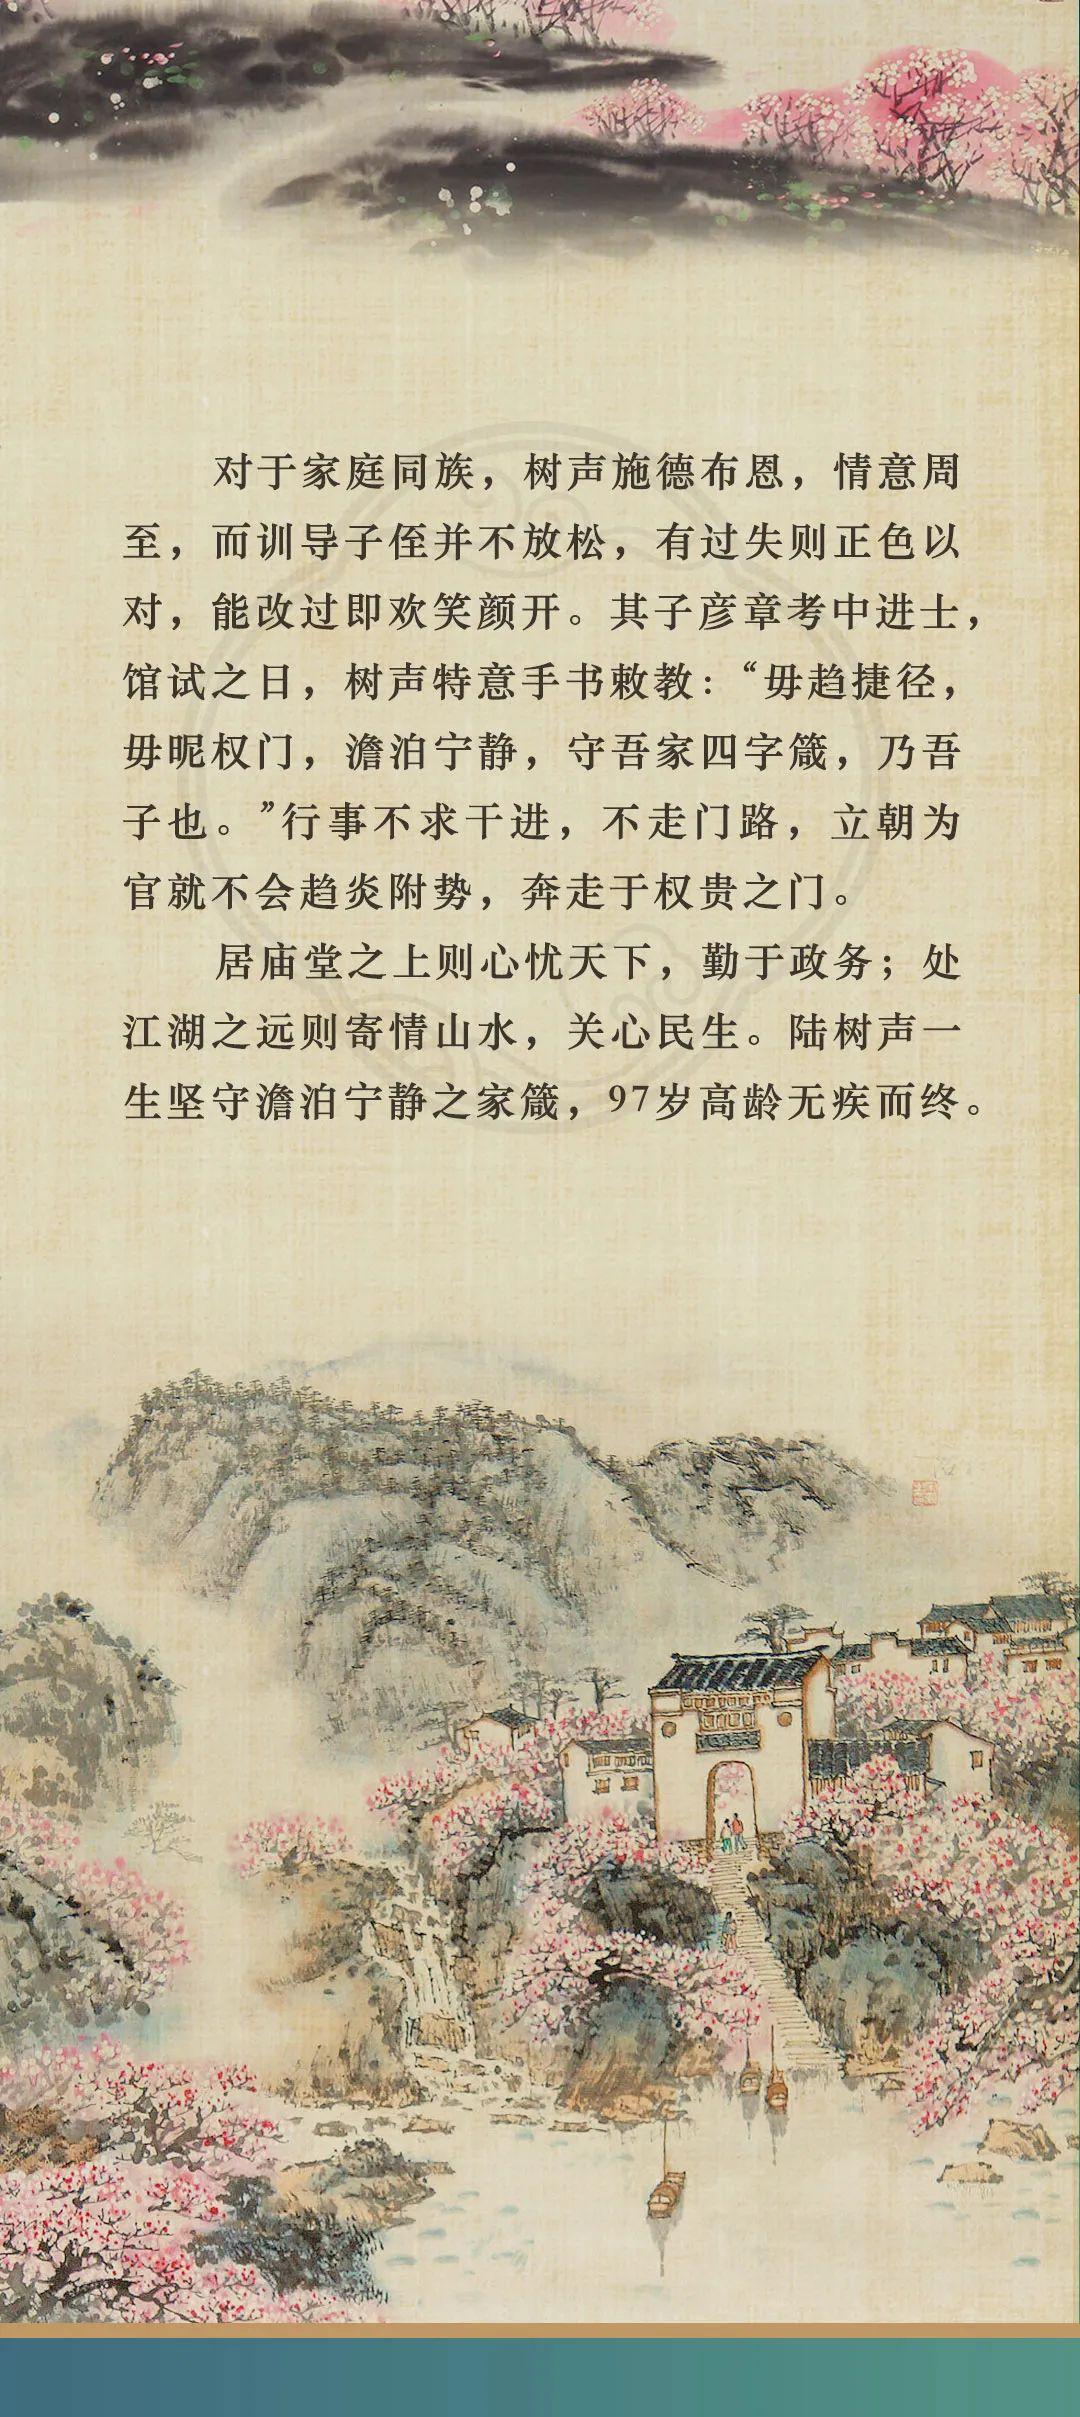 对于家庭同族，树声施德布恩，情意周
至，而训导子侄并不放松，有过失则正色以
对，能改过即欢笑颜开。其子彦章考中进士，
馆试之日，树声特意手书敕教：“毋趋捷径，
毋昵权门，澹泊宁静，守吾家四字箴，乃吾
子也。”行事不求干进，不走门路，立朝为
官就不会趋炎附势，奔走于权贵之门。
居庙堂之上则心忧天下，勤于政务；处
江湖之远则寄情山水，关心民生。陆树声一
生坚守澹泊宁静之家箴，97岁高龄无疾而终。